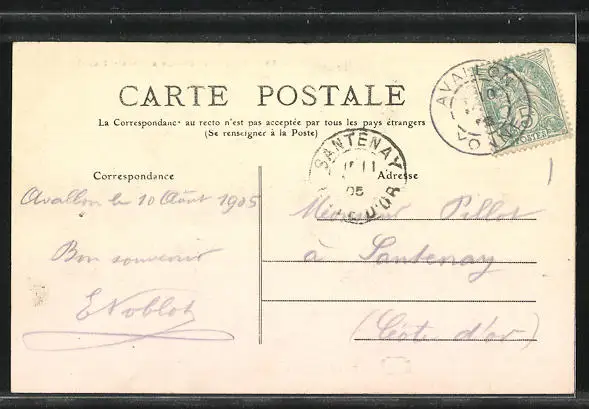 CARTE POSTALE
La Correspondance au recto n'est pas acceptée par tous les pays étrangers
(Se renseigner à la Poste)
AVALLON
YONNE
POSTES
SANTENAY
11
05
CÔTE D'OR
Correspondance
Adresse
Avallon le 10 Août 1905
Bon souvenir
E Noblot
Pillot
à Santenay
(Côte d'or)